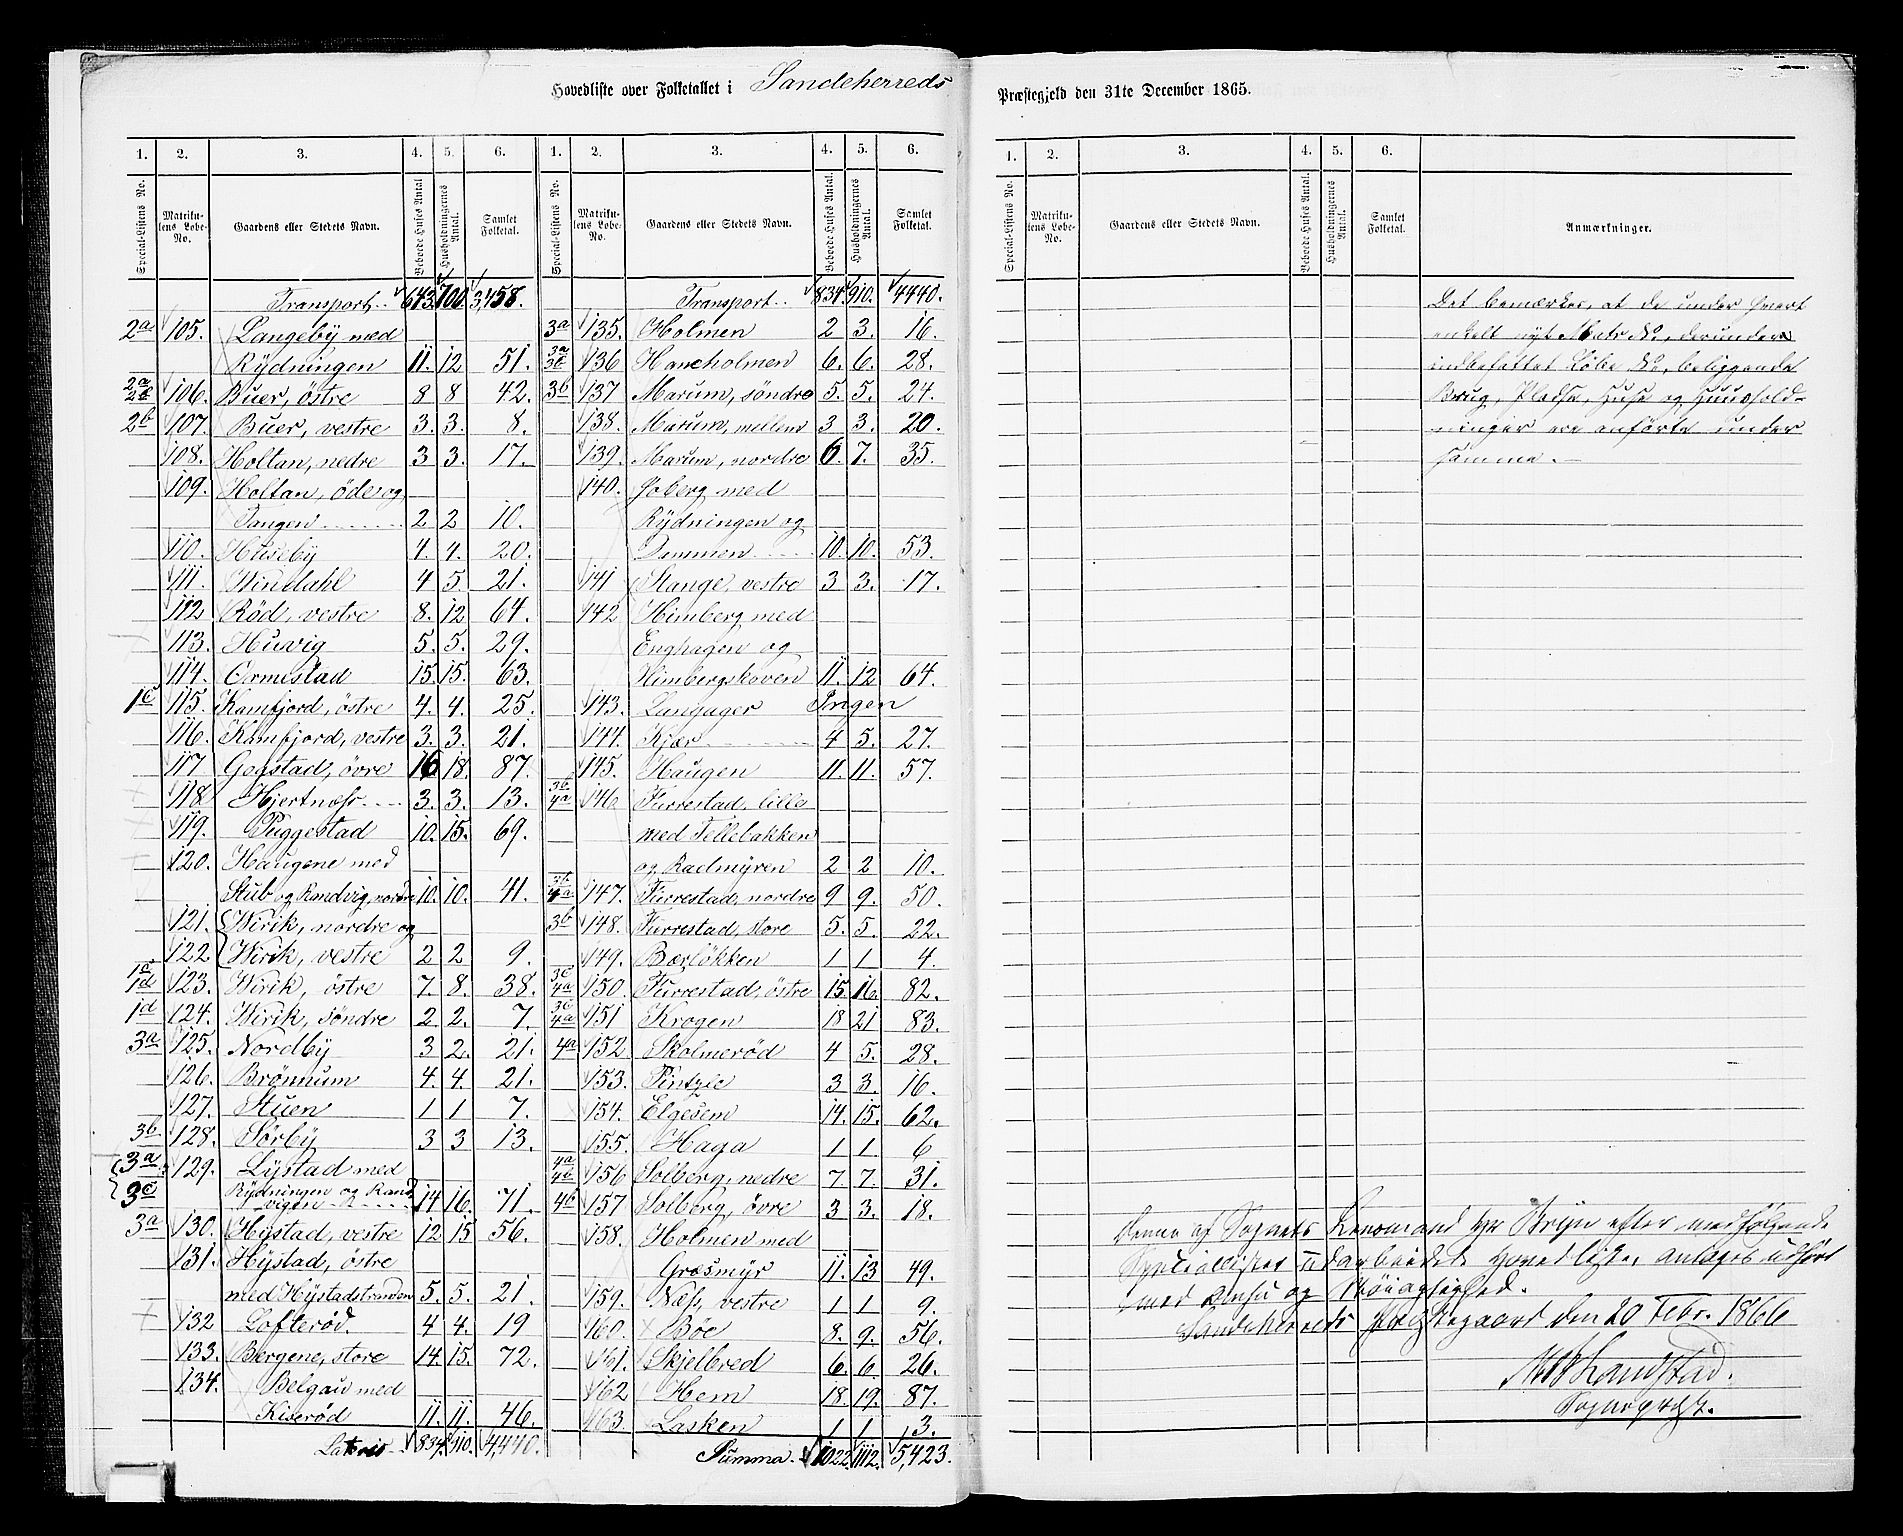 Hovedliste over Folketallet i Sandeherreds
Præstegjeld den 31te December 1865.
1. 2. 3. 4. 5. 6. 1. 2. 3. 4. 5. 6.
Special-Listens No. Matrikulens Løbe-No. Gaardens eller Stedets Navn. Beboede Huses Antal. Husholdningernes Antal. Samlet Folketal. Special-Listens No. Matrikulens Løbe-No. Gaardens eller Stedets Navn. Beboede Huses Antal. Husholdningernes Antal. Samlet Folketal.
Transport 643. 700. 3,458.
2a 105. Langeby med
Rydningen 11. 12 51.
2a 2b 106. Buer, östre 8 8 42.
2b 107. Buer, vestre 3. 3. 8.
108. Holtan, nedre 3 3. 17.
109. Holtan, öde og
Tangen 2 2 10.
110. Huseby 4. 4. 20.
111. Windahl 4 5 21.
112 Röd, vestre 8. 12 64.
113. Husvig 5. 5. 29.
114. Ormestad 15. 15. 63.
1c 115. Kamfjord, östre 4. 4. 25.
116. Kamfjord, vestre 3. 3. 21.
117 Gogstad, övre 16 18. 87.
118. Hjertnæss 3. 3. 13.
119. Puggestad 10. 15. 69.
120. Haugene med
Stub og Randvig, nordre 10. 10. 41.
121. Wirik, nordre og
122 Wirik, vestre 2 2 9.
1c 1d 123. Wirik, östre 7. 8. 38.
1d 124. Wirik, söndre 2 2. 7.
3a 125. Nordby 3 2. 21.
126. Brönnum 4. 4. 21.
127. Stuen 1 1 7.
3b 128. Sörby 3 3 13.
3a 129. Lystad med
3c Rydningen og Rand
vigen 14 16. 71.
3a 130. Hystad, vestre 12 15 56.
131. Hystad, östre
med Hystadstranden 5. 5. 21.
132 Lofteröd. 4 4. 19
133. Bergene, store 14. 15. 72.
134. Belgau med
Kiseröd 11. 11. 46.
Lateris 834. 910. 4,440.
Transport 834. 910. 4440.
3a 135. Holmen 2 3. 16.
3a 3b 136 Haneholmen 6. 6. 28.
3b 137 Marum, söndre 5. 5. 24.
138. Marum, mellem 3 3. 20.
139. Marum, nordre 6. 7. 35.
140. Joberg med
Rydningen og
Dammen 10. 10. 53.
141 Stange, vestre 3 3. 17.
142 Himberg med
Enghagen og
Himbergskoven 11. 12 64.
143. Langager Ingen
144. Kjær 4 5. 27.
145. Haugen 11. 11. 57.
3b 4a 146 Furrestad, lille
med Tellebakken
og Radmyren 2 2 10.
3b 4a 147. Furrestad, nordre 9 9. 50.
3b 148. Furrestad, store 5. 5. 22.
149. Bærlökken 1 1 4.
3c 4a 150. Furrestad, östre 15. 16. 82.
3c 4a 151 Krogen 18 21 83.
4a 152 Skolmeröd 4 5. 28.
153. Pintzle 3 3. 16.
154. Elgesem 14. 15. 62.
155. Haga 1 1. 6
4a 4b 156 Solberg, nedre 7. 7. 31.
4b 157 Solberg, övre 3 3. 18.
158. Holmen med
Græsmyr 11. 13 49.
159. Næss, vestre 1 1 9.
160. Böe 8. 9. 56.
161. Skjelbred 6. 6. 26.
162 Hem 18. 19. 87.
163. Lasken 1 1 3.
Summa 1022 1112. 5,423.
1. 2. 3. 4. 5. 6.
Special-Listens No. Matrikulens Løbe-No. Gaardens eller Stedets Navn. Beboede Huses Antal. Husholdningernes Antal. Samlet Folketal. Anmærkninger.
Det bemærkes, at de under hvert
enkelt nyt Matr. No, derunder
indbefattet Löbe No, beliggende
Brug, Pladse, Huse og Huushold-
ninger ere anförte under
samme.
Denne af Sognets Lensmand Hr Bryn efter medfølgende
Speciallister udarbeidede Hovedliste, antages udført
med Omhu og Nöiagtighed.
Sandeherreds Præstegaard den 20 Febr. 1866
MBLandstad.
Sognepræst.